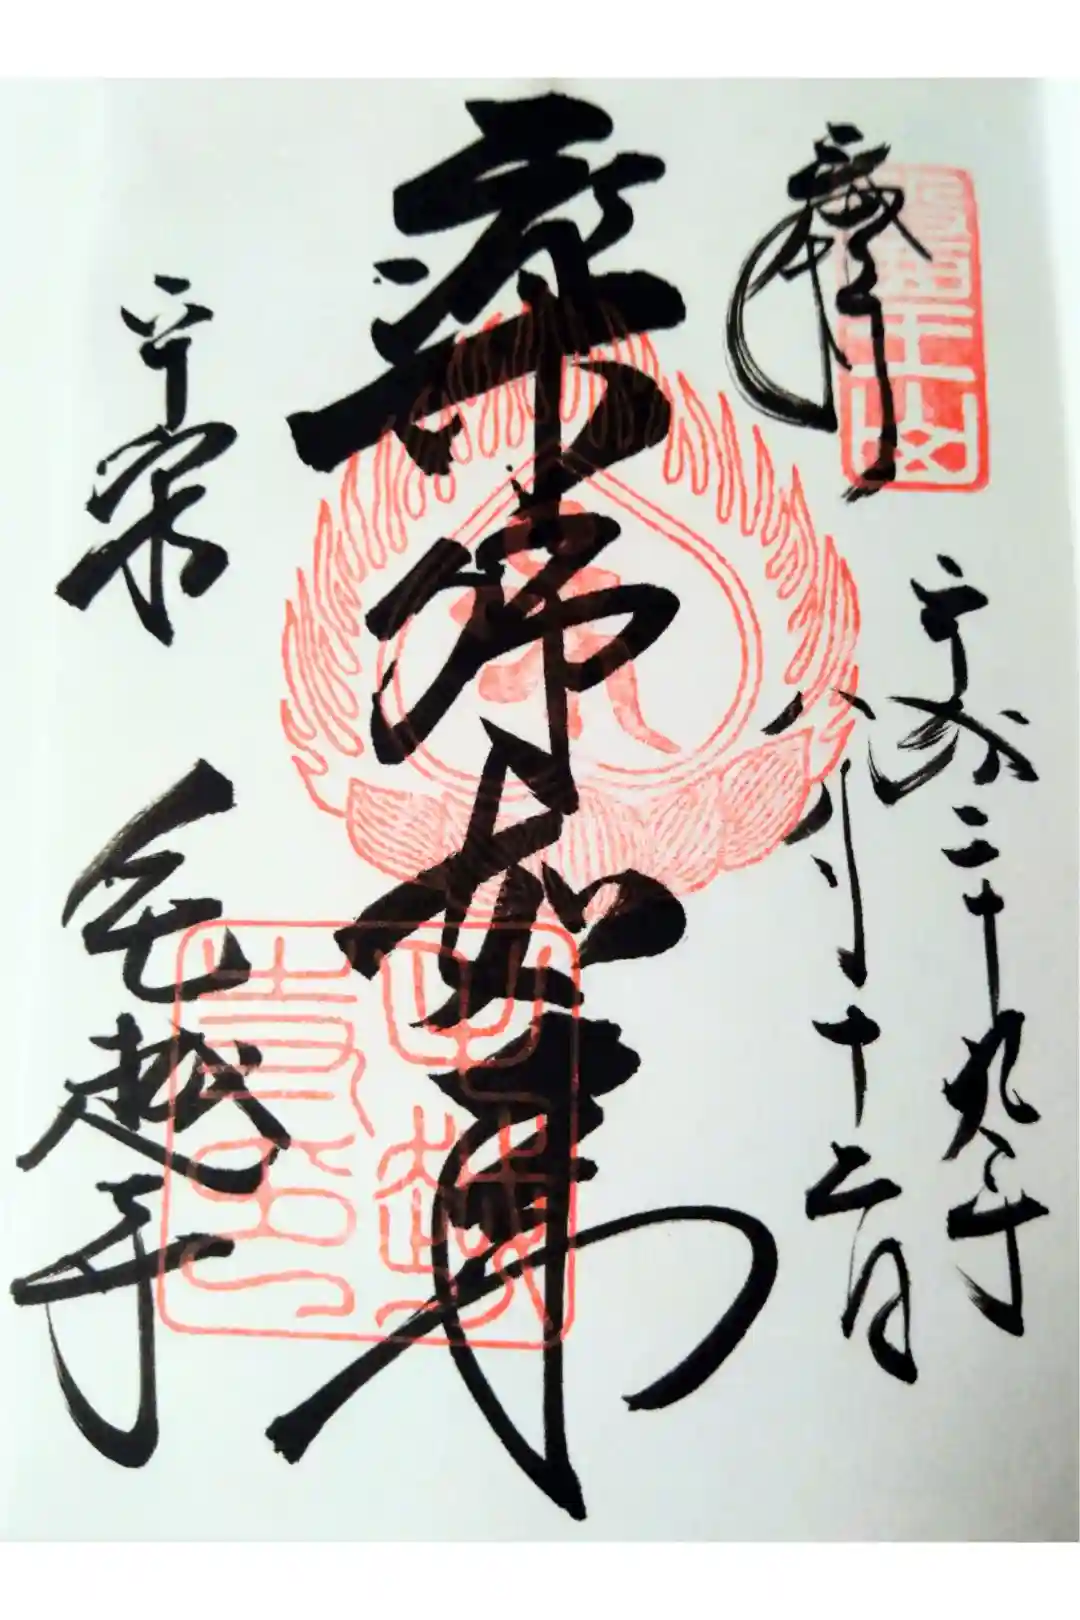 奉拝
醫王山
平成二十九年
八月十二日
薬師如来
平泉
毛越寺
毛越
寺印